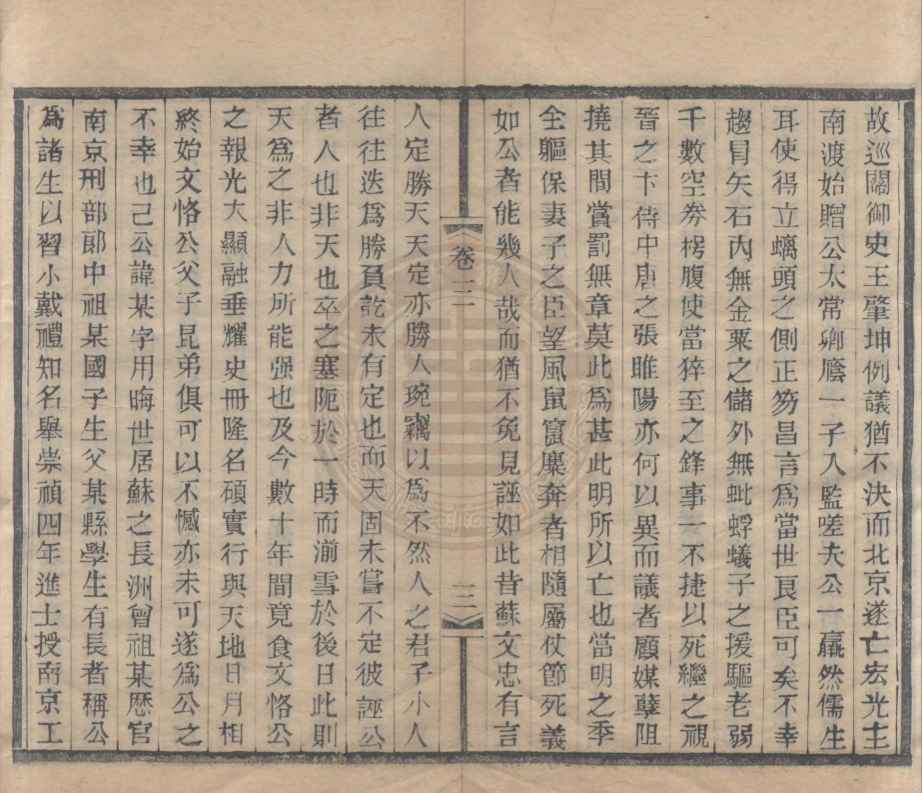 故巡關御史王肇坤例議猶不決而北京遂亡宏光主
南渡始贈公太常卿廕一子入監嗟夫公一羸然儒生
耳使得立螭頭之側正笏昌言為當世良臣可矣不幸
趨冒矢石內無金粟之儲外無蚍蜉蟻子之援驅老弱
千數空劵楞腹使當猝至之鋒事一不捷以死繼之視
晉之卞侍中唐之張睢陽亦何以異而議者顧媒孽阻
撓其間賞罰無章莫此為甚此明所以亡也當明之季
全軀保妻子之臣望風鼠竄麇奔者相隨屬仗節死義
如公者能幾人哉而猶不免見誣如此昔蘇文忠有言
卷三
三
人定勝天天定亦勝人琬竊以為不然人之君子小人
往往迭為勝負訖未有定也而天固未嘗不定彼誣公
者人也非天也卒之塞阨於一時而湔雪於後日此則
天為之非人力所能强也及今數十年間竟食文恪公
之報光大顯融垂耀史冊隆名碩實行與天地日月相
終始文恪公父子昆弟俱可以不憾亦未可遂為公之
不幸也己公諱某字用晦世居蘇之長洲曾祖某歷官
南京刑部郞中祖某國子生父某縣學生有長者稱公
為諸生以習小戴禮知名舉崇禎四年進士授南京工